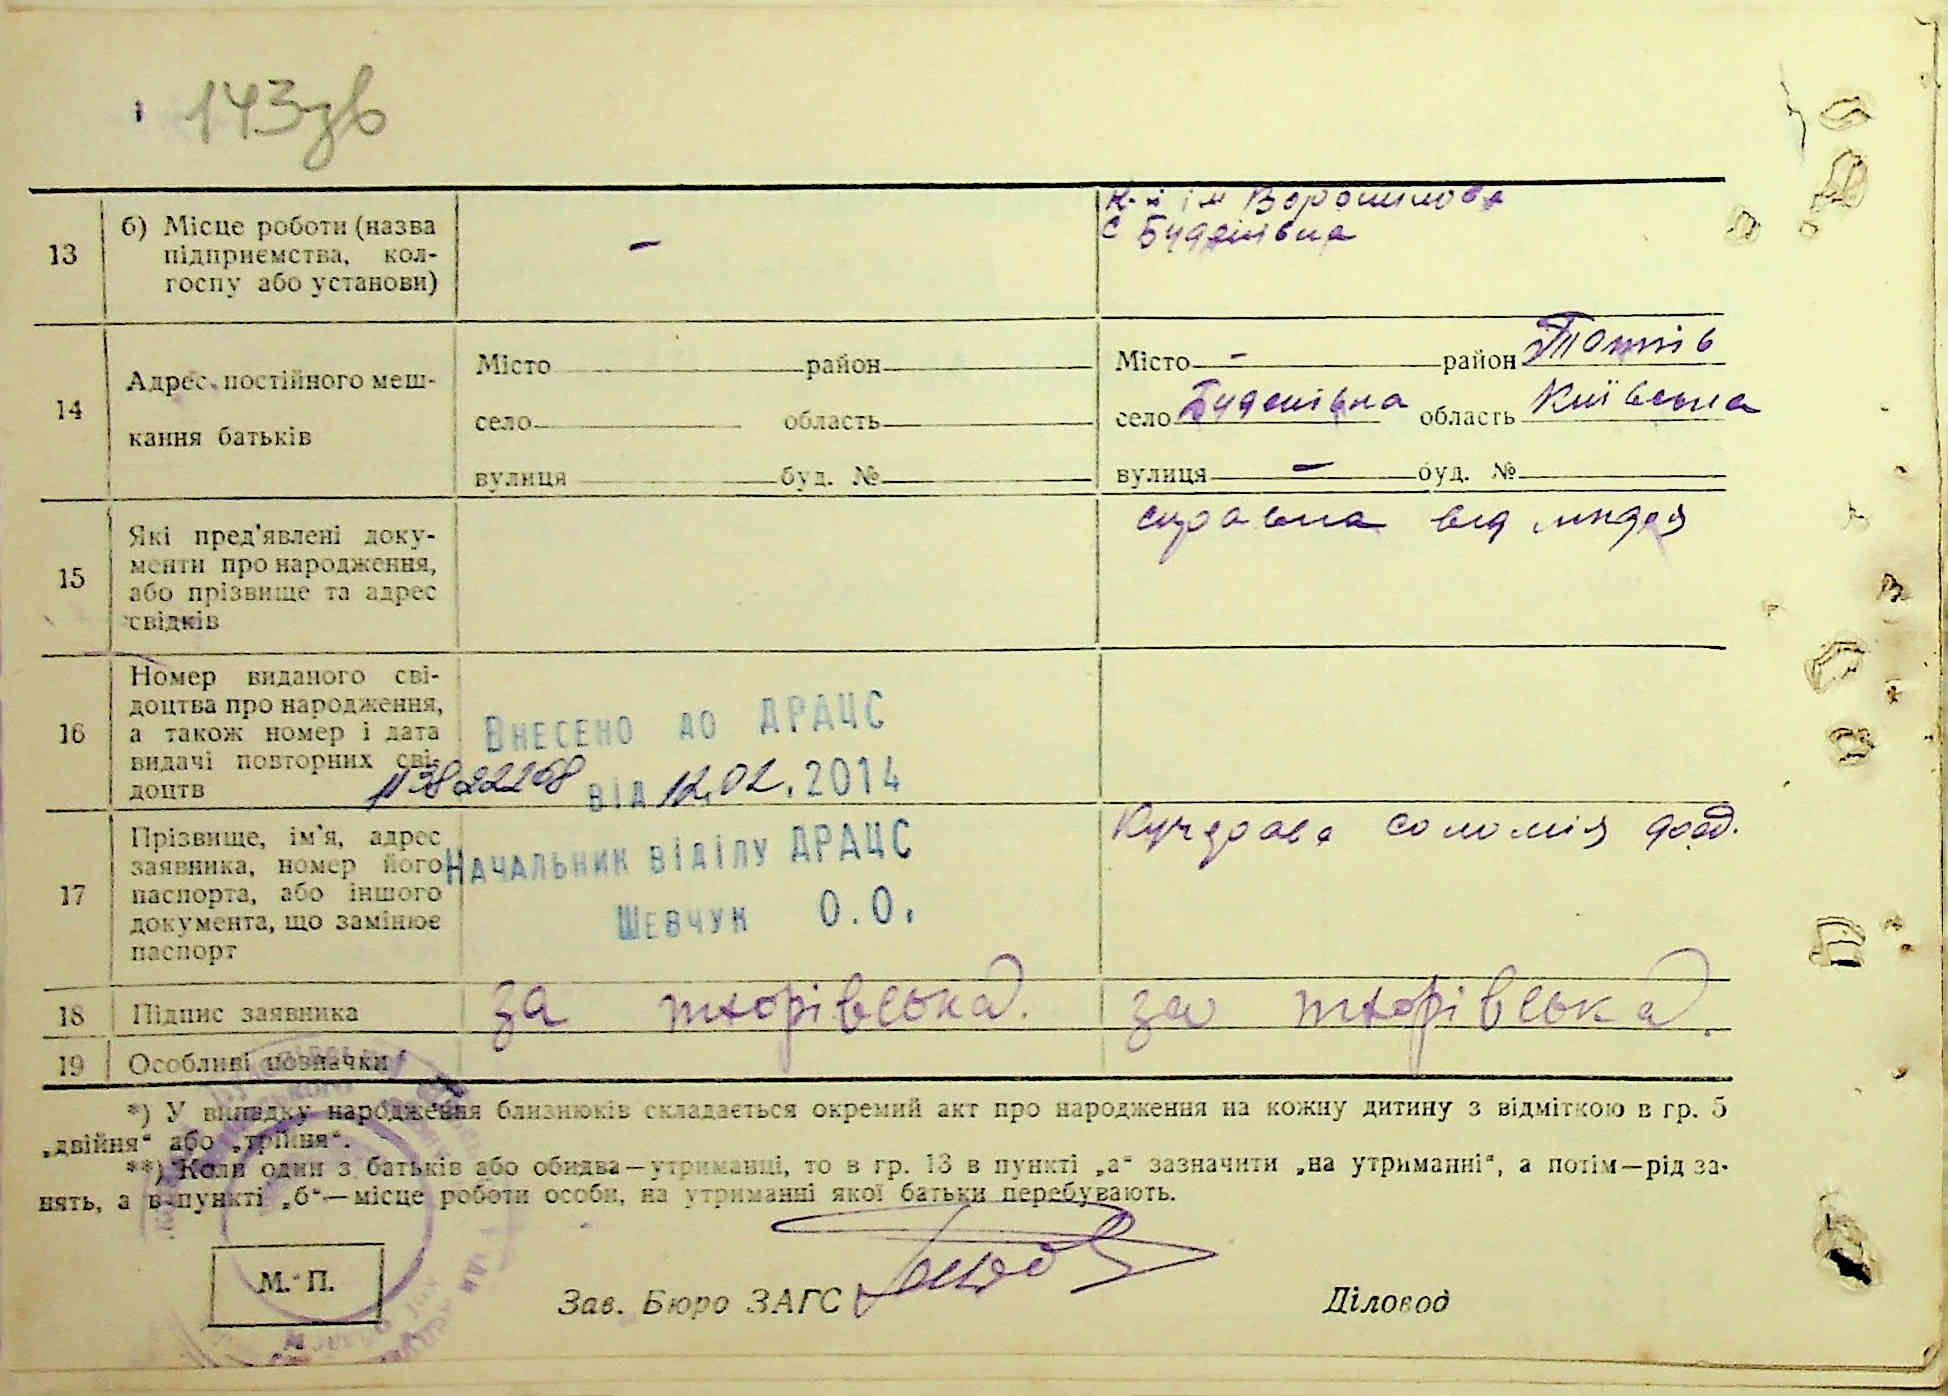 143зв
К-п ім Ворошилова
с Буденівка
13
б) Місце роботи (назва
підприємства, кол-
госпу або установи)
–
14
Адрес постійного меш-
кання батьків
Місто район
село область
вулиця буд. №
Місто – район
село Буденівка область Київська
вулиця – буд. №
15
Які пред'явлені доку-
менти про народження,
або прізвище та адрес
свідків
справка від
16
Номер виданого сві-
доцтва про народження,
а також номер і дата
видачі повторних сві-
доцтв
Внесено до ДРАЦС
від 12.02.2014
17
Прізвище, ім'я, адрес
заявника, номер його
паспорта, або іншого
документа, що замінює
паспорт
Начальник відділу ДРАЦС
Шевчук О.О.
Соломія
18
Підпис заявника
за
за
19
Особливі позначки
*) У випадку народження близнюків складається окремий акт про народження на кожну дитину з відміткою в гр. 5
„двійня“ або „трійня“.
**) Коли один з батьків або обидва—утриманці, то в гр. 13 в пункті „а“ зазначити „на утриманні“, а потім—рід за-
нять, а в пункті „б“—місце роботи особи, на утриманні якої батьки перебувають.
М. П.
Зав. Бюро ЗАГС
Діловод